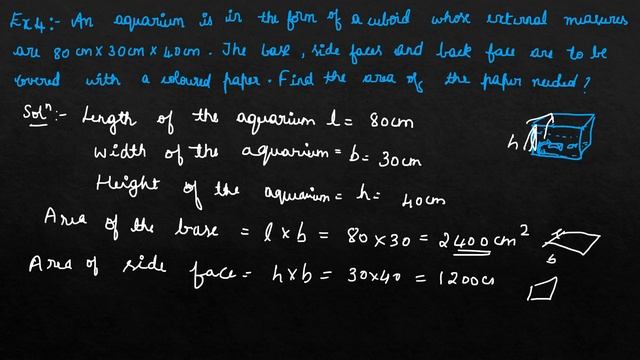 Ex4:- An aquarium is in the form of a cuboid whose external measures
are 80 cm × 30 cm × 40 cm. The base, side faces and back face are to be
covered with a coloured paper. Find the area of the paper needed?
Solⁿ:- Length of the aquarium l = 80cm
h
Width of the aquarium = b = 30cm
Height of the aquarium = h = 40cm
Area of the base = l × b = 80 × 30 = 2400 cm²
b
Area of side face = h × b = 30×40 = 1200c